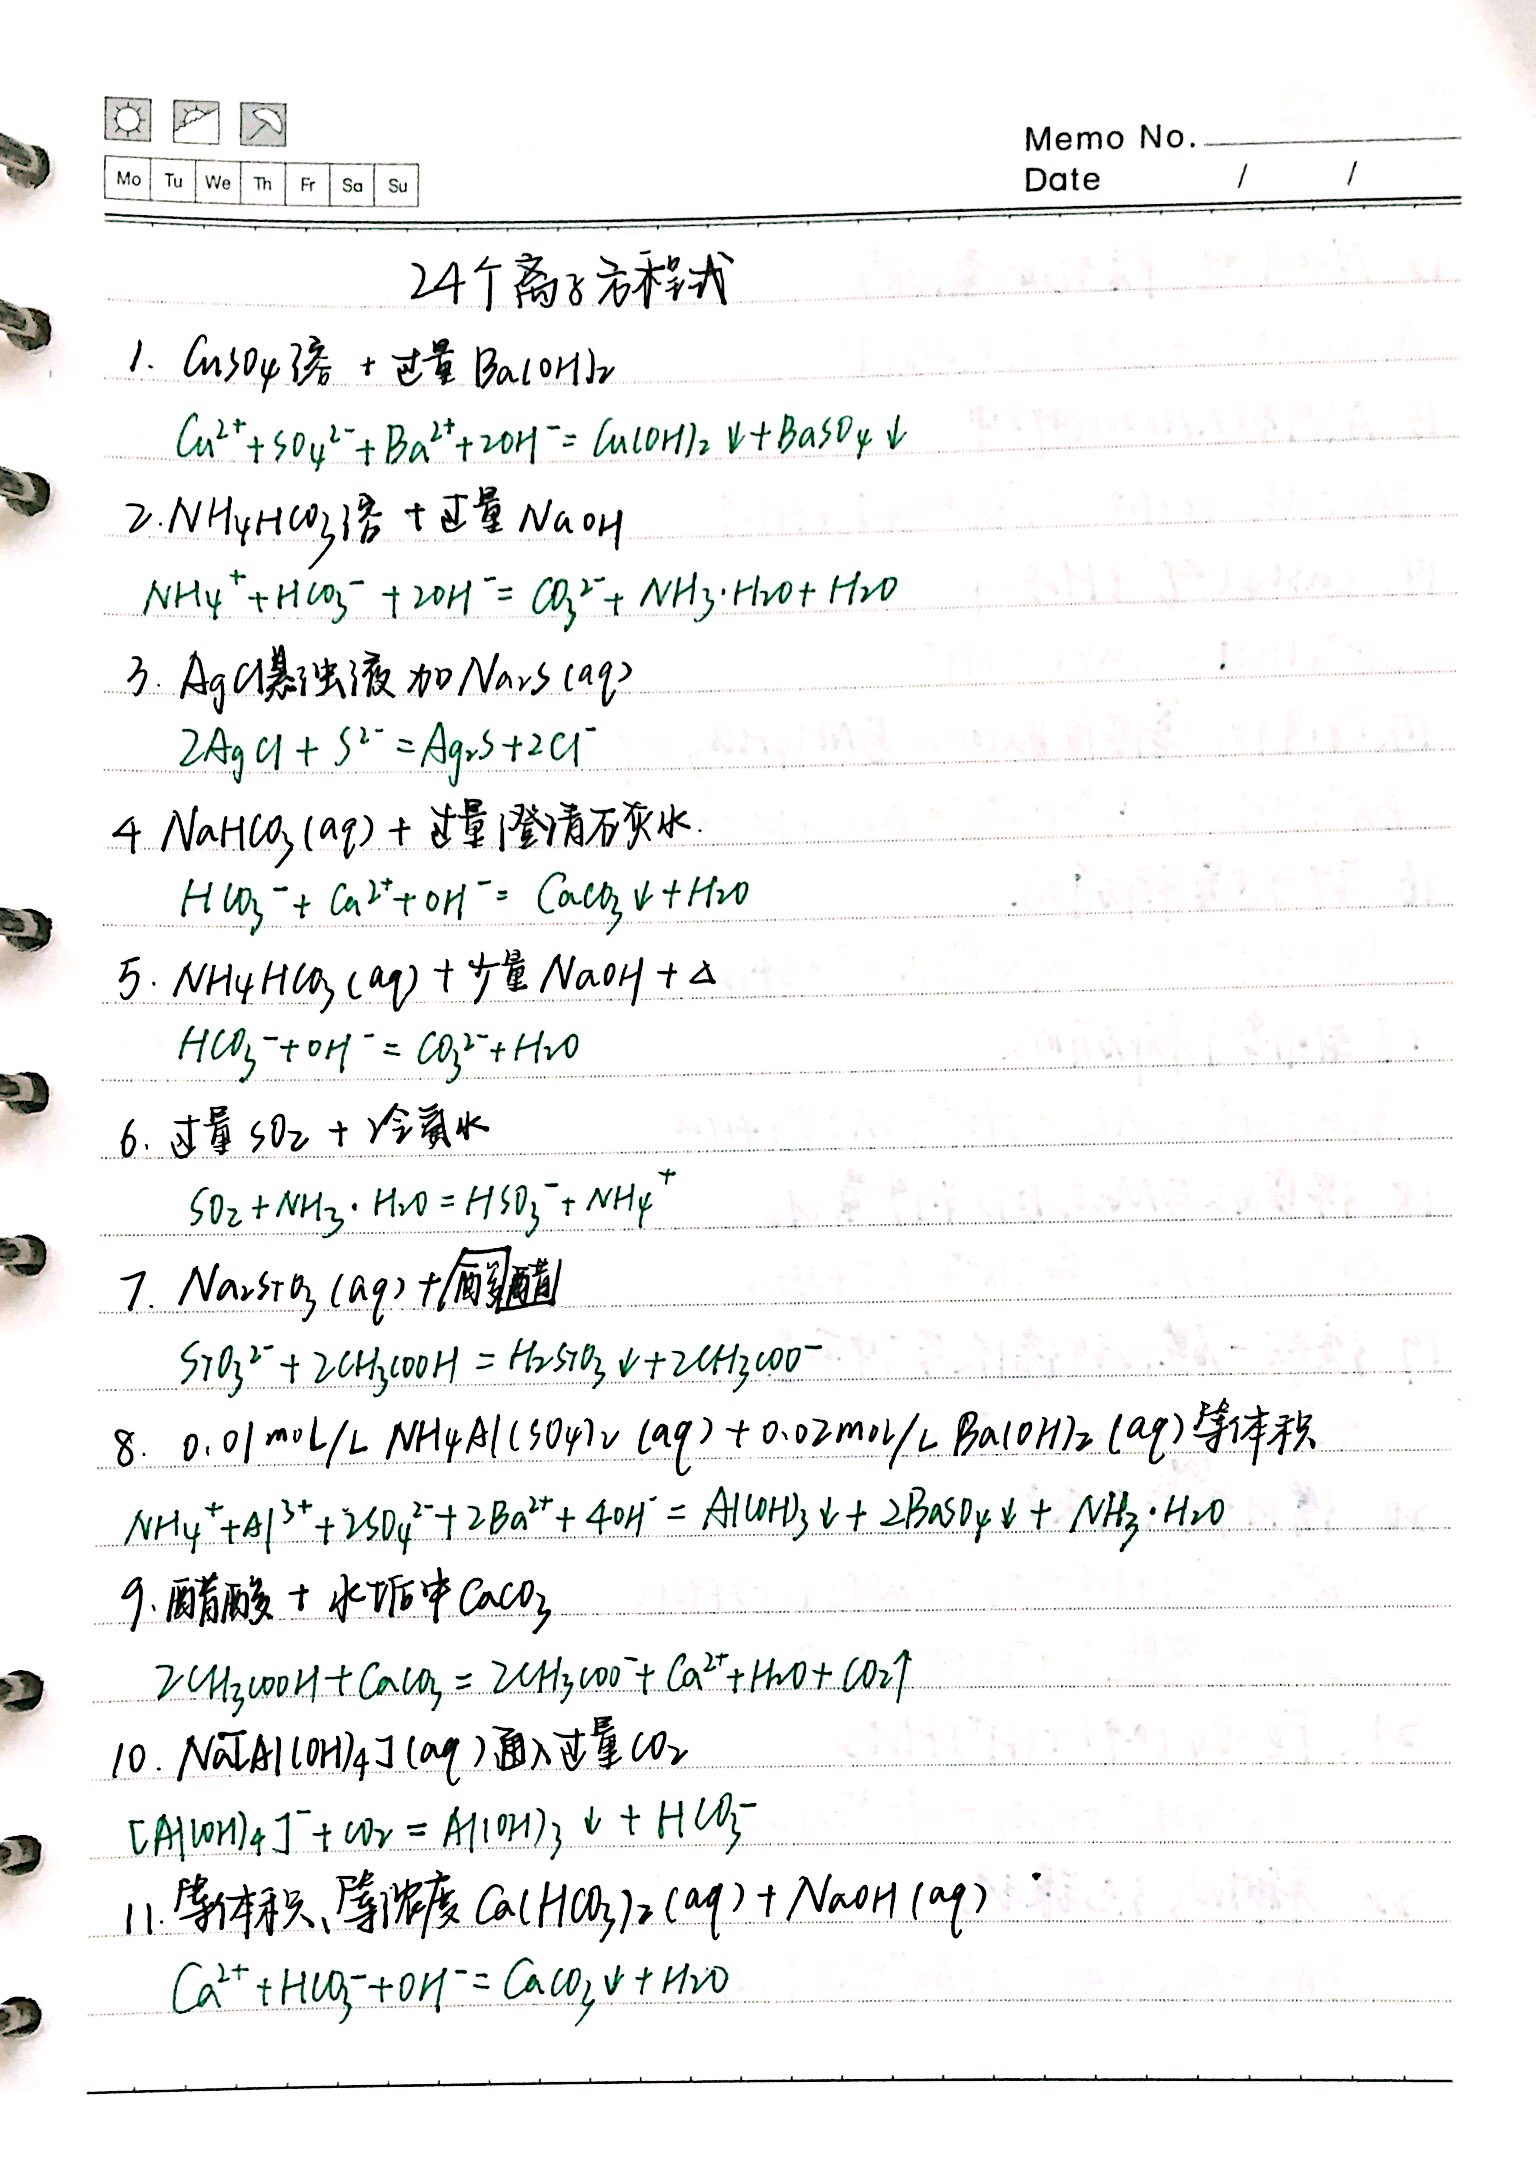 Mo Tu We Th Fr Sa Su
Memo No.
Date / /
24个离子方程式
1. CuSO4溶 + 过量 Ba(OH)2
Cu²⁺+SO4²⁻+Ba²⁺+2OH⁻=Cu(OH)2↓+BaSO4↓
2.NH4HCO3溶 + 过量 NaOH
NH4⁺+HCO3⁻+2OH⁻=CO3²⁻+NH3·H2O+H2O
3. AgCl悬浊液加Na2S(aq)
2AgCl+S²⁻=Ag2S+2Cl⁻
4 NaHCO3(aq)+过量澄清石灰水.
HCO3⁻+Ca²⁺+OH⁻=CaCO3↓+H2O
5. NH4HCO3(aq)+少量NaOH+Δ
HCO3⁻+OH⁻=CO3²⁻+H2O
6. 过量SO2+冷氨水
SO2+NH3·H2O=HSO3⁻+NH4⁺
7. Na2SiO3(aq)+酸醋
SiO3²⁻+2CH3COOH=H2SiO3↓+2CH3COO⁻
8. 0.01mol/L NH4Al(SO4)2(aq)+0.02mol/L Ba(OH)2(aq)等体积
NH4⁺+Al³⁺+2SO4²⁻+2Ba²⁺+4OH⁻=Al(OH)3↓+2BaSO4↓+NH3·H2O
9.醋酸+水垢中CaCO3
2CH3COOH+CaCO3=2CH3COO⁻+Ca²⁺+H2O+CO2↑
10. Na[Al(OH)4](aq)通入过量CO2
[Al(OH)4]⁻+CO2=Al(OH)3↓+HCO3⁻
11.等体积、等浓度Ca(HCO3)2(aq)+NaOH(aq)
Ca²⁺+HCO3⁻+OH⁻=CaCO3↓+H2O